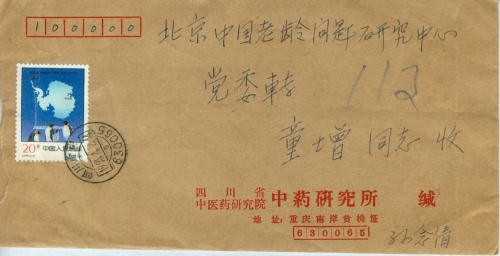 100000
北京中国老龄问题研究中心
党委转
113
童增 同志 收
20分
中国人民邮政
630065
四川
四川省
中医药研究院
中药研究所 缄
地址：重庆南岸黄桷垭
630065
孙念清